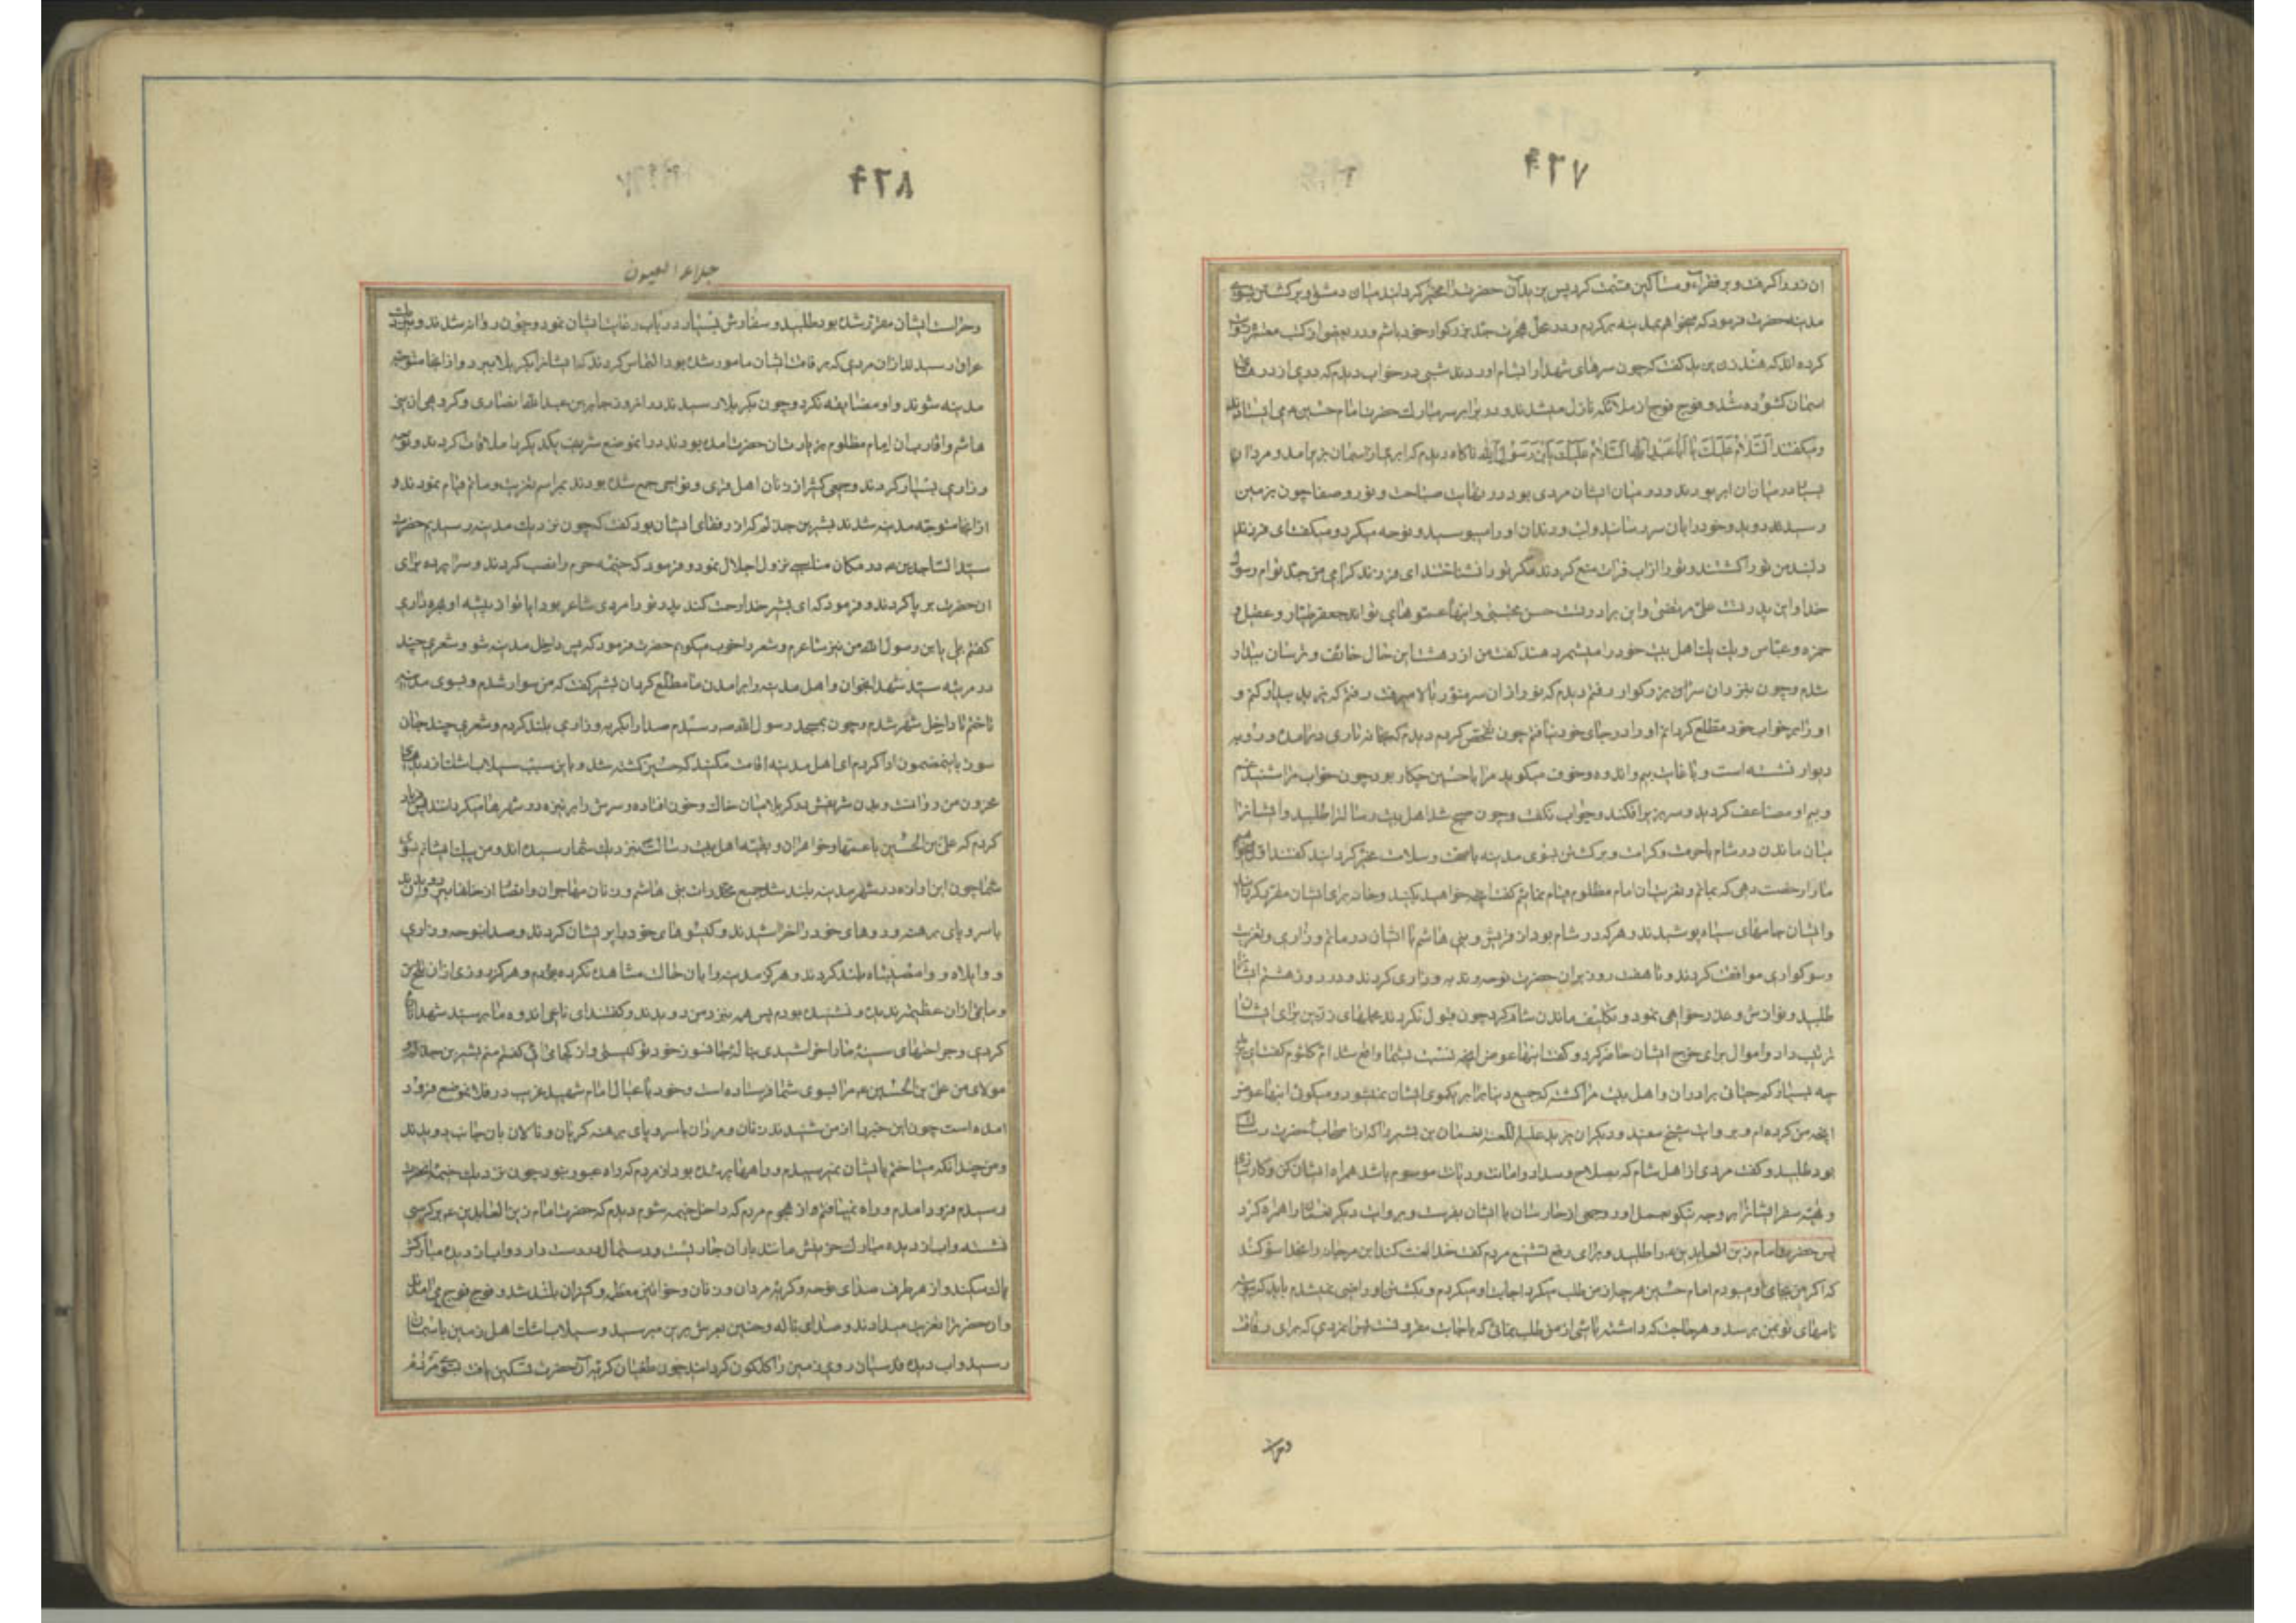 ۴۲۷
ان زر را گرفت و بر فقراء و مساکین قسمت کرد پس یزید آن حضرت را مخیر گردانید میان دمشق و برگشتن بسوی
مدینه حضرت فرمود که میخواهم بمدینه برگردم و در محل هجرت جد بزرگوار خود باشم و در بعضی از کتب معتبره روایت
کرده اند که هند زن یزید گفت که چون سرهای شهدا را بشام اوردند شبی در خواب دیدم که دری از درهای
اسمان کشوده شد و فوج فوج از ملائکه نازل میشدند و در برابر سر مبارک حضرت امام حسین ع می ایستادند
و میگفتند السلام علیک یا ابا عبد الله السلام علیک یا بن رسول الله ناگاه دیدم که ابری از اسمان بزیر امد و مردان
بسیار در میان ان ابر بودند و در میان ایشان مردی بود در نهایت صباحت و نور و صفا چون بزمین
رسیدند دوید و خود را بان سر رسانید و لب و دندان او را میبوسید و نوحه میکرد و میگفت ای فرزند
دلبند من تو را کشتند و تو را از اب فرات منع کردند مگر تو را نشناختند ای فرزند گرامی من جد توام رسول
خدا و این پدر تست علی مرتضی و این برادر تست حسن مجتبی و اینها عموهای تو اند جعفر طیار و عقیل و
حمزه و عباس و یک یک اهل بیت خود را میشمرد هند گفت من از دهشت این حال خائف و ترسان بیدار
شدم و چون بنزد ان سر بزرگوار رفتم دیدم که نور از ان سر منور بالا میرفت رفتم که یزید را بیدار کنم و
او را بر خواب خود مطلع گردانم او را در جای خود نیافتم چون تفحص کردم دیدم که بخانه تاری درامده و رو بر
دیوار نشسته است و با غایت بیم و اندوه و خوف میگوید مرا با حسین چکار بود چون خواب مرا شنید غم
و بیم او مضاعف گردید و سر بزیر افکند و جواب نگفت و چون صبح شد اهل بیت رسالت را طلبید و ایشان را
میان ماندن در شام با حرمت و کرامت و برگشتن بسوی مدینه با صحت و سلامت مخیر گردانید گفتند اول میخواهیم
ما را رخصت دهی که بماتم و تعزیت ان امام مظلوم قیام نمائیم گفت انچه خواهید بکنید و خانه برای ایشان مقرر کرد
و ایشان جامهای سیاه پوشیدند و هر که در شام بود از قریش و بنی هاشم با ایشان در ماتم و زاری و تعزیت
و سوگواری موافقت کردند و تا هفت روز بران حضرت نوحه و ندبه و زاری کردند و در روز هشتم ایشان را
طلبید و نوازش و عذرخواهی نمود و تکلیف ماندن شام کرد چون قبول نکردند محملهای زرین برای ایشان
ترتیب داد و اموال برای خرج ایشان حاضر کرد و گفت اینها عوض انچه نسبت بشما واقع شد ام کلثوم گفت ای یزید
چه بسیار کم حیائی برادران و اهل بیت مرا کشته که جمیع دنیا برابر یکموی ایشان نمیشود و میگوئی اینها عوض
انچه من کرده ام و بروایت شیخ مفید و دیگران یزید علیه اللعنه نعمان بن بشیر را که از صحابه حضرت رسالت
بود طلبید و گفت مردی از اهل شام که بصلاح و سداد و امانت و دیانت موسوم باشد همراه ایشان کن و کارسازی
و تهیه سفر ایشان را بر وجه نیکو بعمل اور و جمعی از حارسان با ایشان بفرست و بروایت دیگر نعمان را همراه کرد
پس حضرت امام زین العابدین ع را طلبید و برای رفع تشنیع مردم گفت خدا لعنت کند ابن مرجانه را بخدا سوگند
که اگر من بجای او میبودم امام حسین هر چه از من طلب میکرد اجابت او میکردم و بکشتن او راضی نمیشدم باید که پیوسته
نامهای تو بمن برسد و هر حاجت که داشته باشی از من طلب نمائی که باجابت مقرونست پس ان مردی که برای رفاقت
۴۲۸
جلاء العیون
و حراست ایشان مقرر شده بود طلبید و سفارش بسیار در باب رعایت ایشان نمود و چون روانه شدند و بنزدیک
عراق رسیدند از ان مردی که برفاقت ایشان مامور شده بود التماس کردند که ایشان را بکربلا ببرد و از انجا متوجه
مدینه شوند و او مضایقه نکرد و چون بکربلا رسیدند در انروز جابر بن عبدالله انصاری و گروهی از بنی
هاشم و اقارب ان امام مظلوم بزیارت ان حضرت امده بودند در انموضع شریف یکدیگر را ملاقات کردند و نوحه
و زاری بسیار کردند و جمعی کثیر از زنان اهل قری و نواحی جمع شده بودند بمراسم تعزیت و ماتم قیام نمودند و
از انجا متوجه مدینه شدند بشیر بن جذلم که از رفقای ایشان بود گفت که چون نزدیک مدینه رسیدیم حضرت
سید الساجدین ع در مکان مناسبی نزول اجلال نمود و فرمود که خیمه حرم را نصب کردند و سراپرده برای
ان حضرت بر پا کردند و فرمود که ای بشیر خدا رحمت کند پدر تو را مردی شاعر بود ایا تو از پیشه او بهره داری
گفتم بلی یا بن رسول الله من نیز شاعرم و شعر را خوب میگویم حضرت فرمود که پس داخل مدینه شو و شعری چند
در مرثیه سید شهدا بخوان و اهل مدینه را بر امدن ما مطلع گردان بشیر گفت که من سوار شدم و بسوی مدینه
تاختم تا داخل شهر شدم و چون بمسجد رسول الله ص رسیدم صدا را بگریه و زاری بلند کردم و شعری چند
باینمضمون ادا کردم ای اهل مدینه اقامت مکنید که حسین کشته شد و باین سبب سیلاب اشک از دیدهای
محزون من روانست و بدن شریفش در کربلا میان خاک و خون افتاده و سرش را بر نیزه در شهرها میگردانند پس فریاد
کردم که علی بن الحسین با عمتها و خواهران و بقیه اهل بیت رسالت بنزدیک شما رسیده اند و من پیک ایشانم بسوی
شما چون این اوازه در شهر مدینه بلند شد جمیع مخدرات بنی هاشم و زنان مهاجران و انصار از خانها بیرون دویدند
با سر و پای برهنه و روهای خود را خراشیدند و گیسوهای خود را پریشان کردند و صدا بنوحه و زاری
و واویلاه و وامصیبتاه بلند کردند و هرگز مدینه را بان حال مشاهده نکرده بودم و هرگز روزی از ان تلخ تر
و ماتمی از ان عظیمتر ندیده و نشنیده بودم پس همه بنزد من دویدند و گفتند ای ناعی اندوه ما بر سید شهدا تازه
کردی و جراحتهای سینه ما را خراشیدی خود تو کیستی و از کجا می ائی گفتم منم بشیر بن جذلم
مولای من علی بن الحسین ع مرا بسوی شما فرستاده است و خود با عیال امام شهید غریب در فلان موضع فرود
امده است چون این خبر را از من شنیدند زنان و مردان با سر و پای برهنه گریان و نالان بان جانب دویدند
و من چندانکه میتاختم بایشان نمیرسیدم و راهها پر شده بود از مردم که راه عبور نبود چون نزدیک خیمه انحضرت
رسیدم فرود امدم و راه نمییافتم از هجوم مردم که داخل خیمه شوم دیدم که حضرت امام زین العابدین ع بر کرسی
نشسته و اب از دیده مبارک حزینش مانند باران جاریست و دستمالی در دست دارد و اب از دیده مبارکش
پاک میکند و از هر طرف صدای نوحه و گریه مردان و زنان و خواتین معظمه و کنیزان بلند شد و فوج فوج می امدند
و انحضرت را تعزیت میدادند و صدای ناله و حنین بعرش برین میرسید و سیلاب اشک اهل زمین باسمان
رسید و اب دیده قدسیان روی زمین را گلگون گردانید چون طغیان گریه آن حضرت تسکین یافت